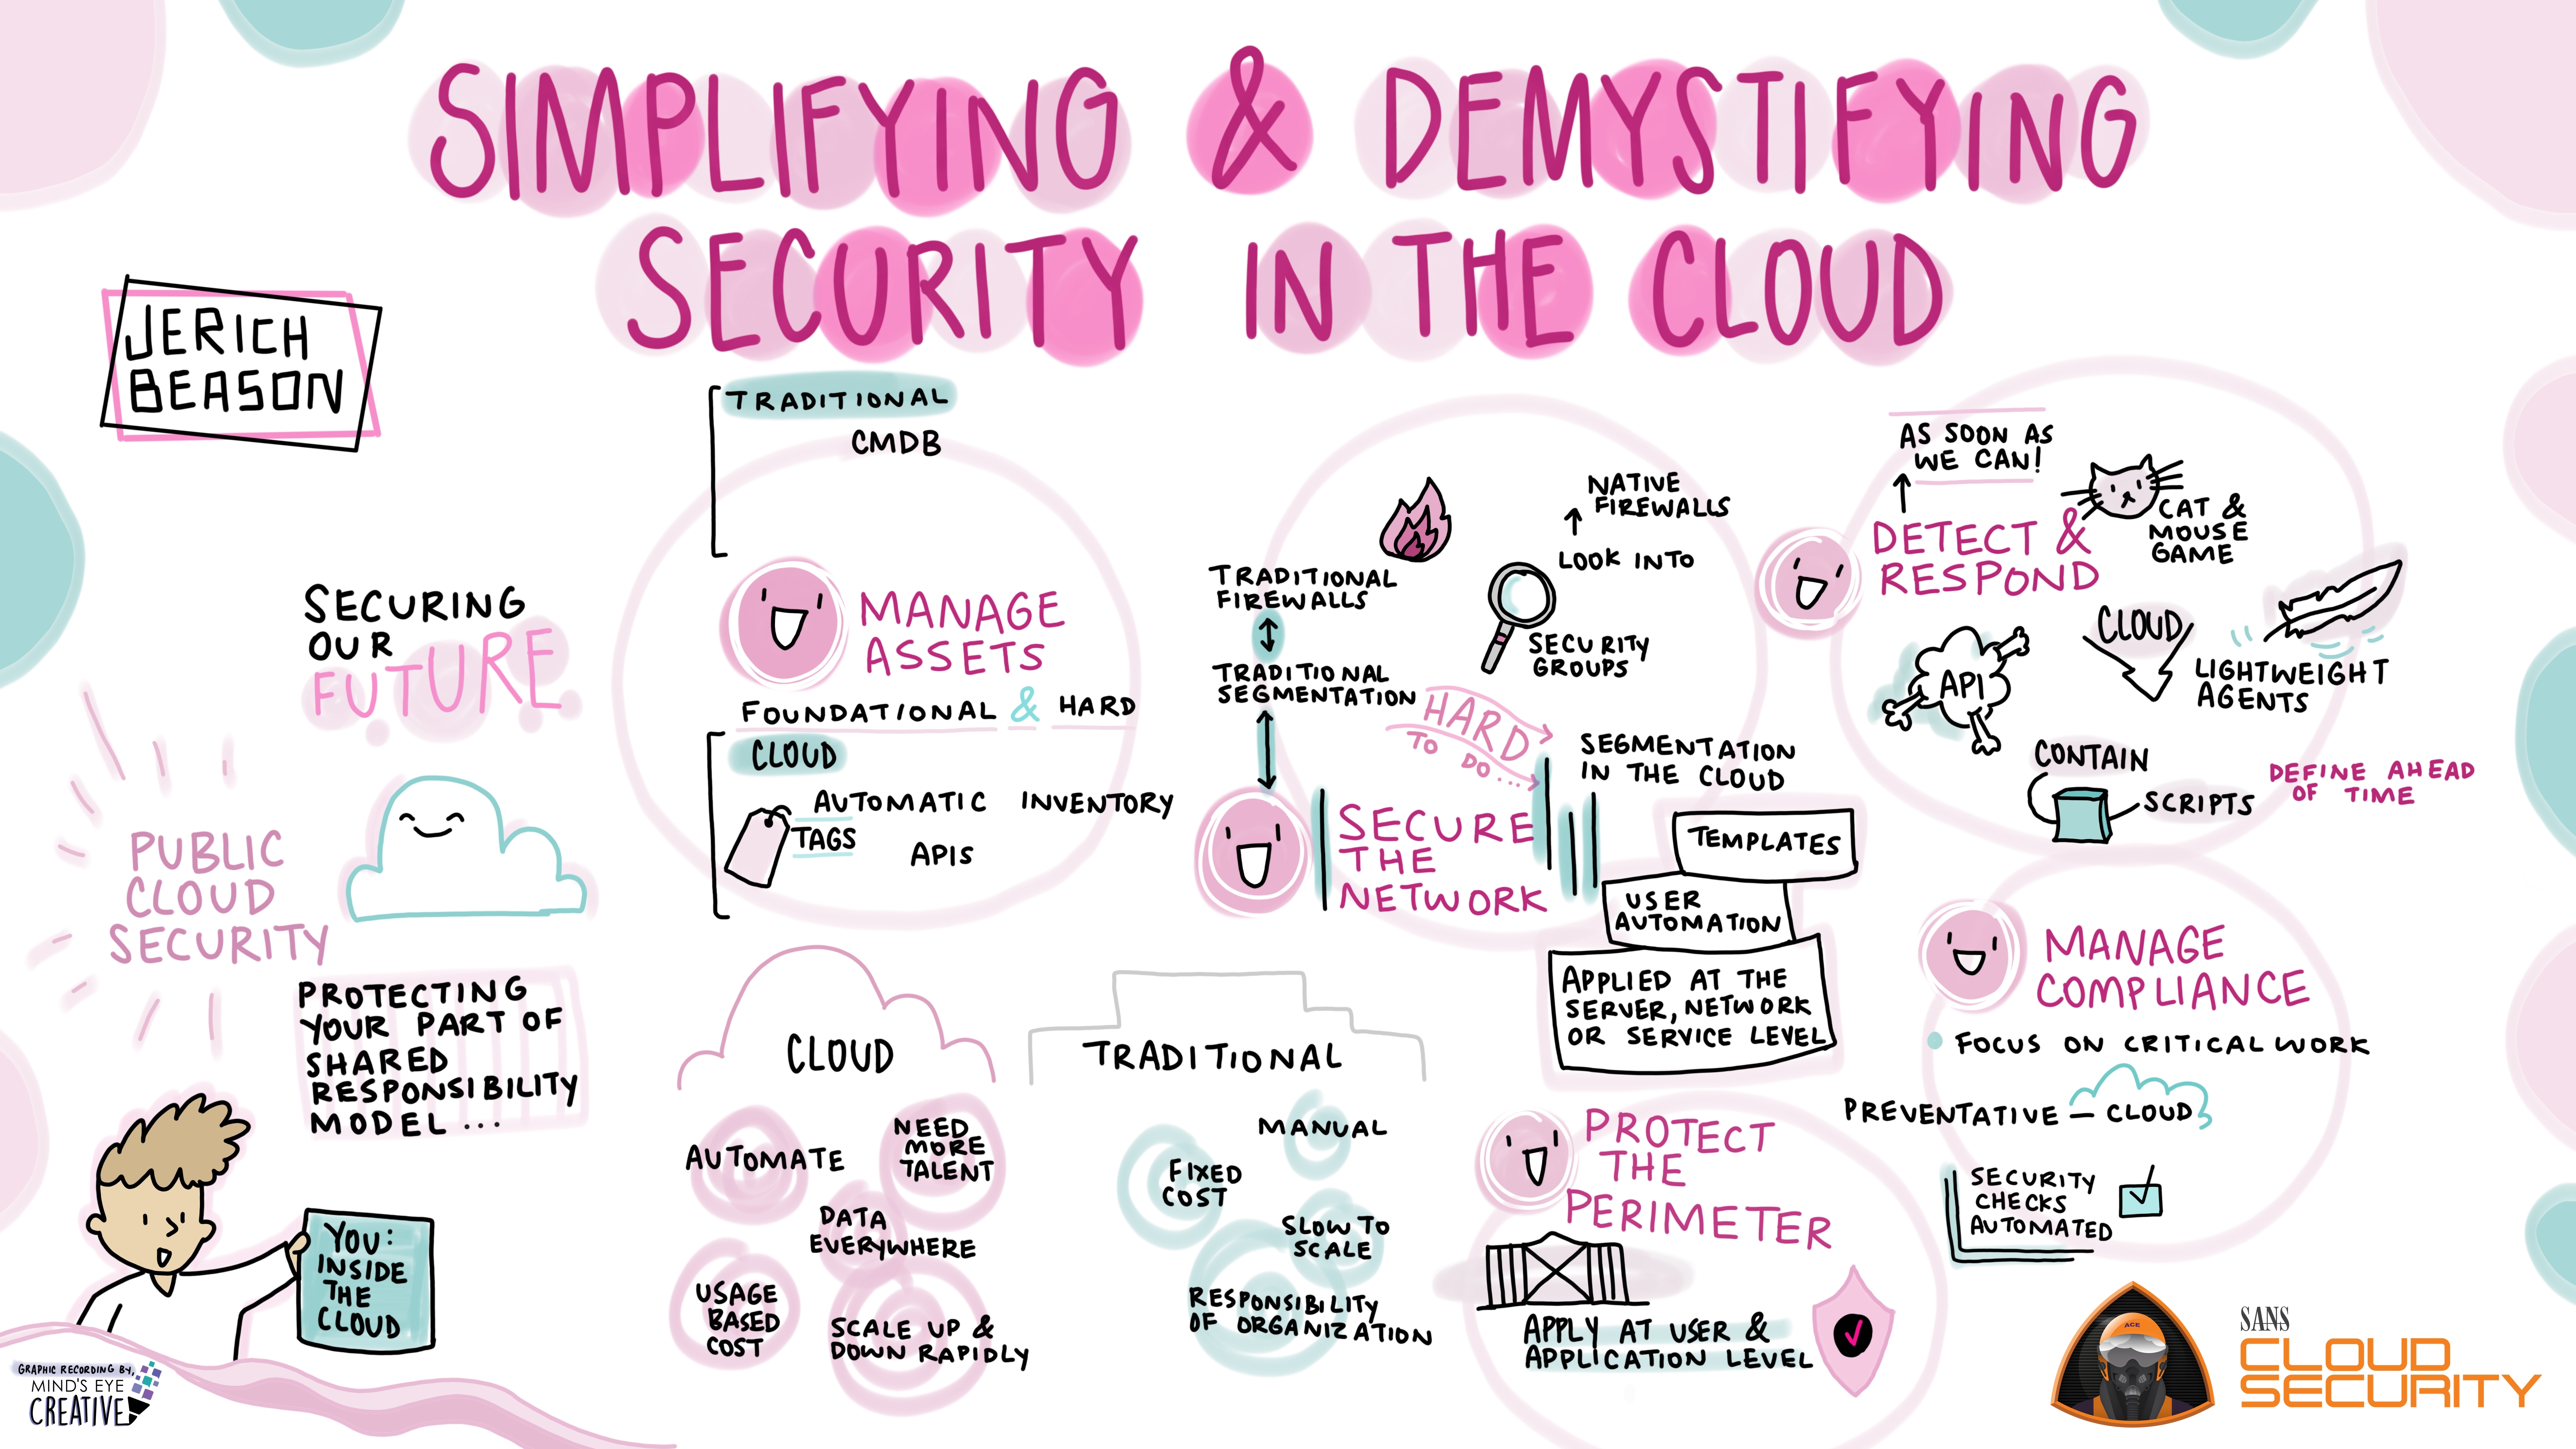 SIMPLIFYING & DEMYSTIFYING
SECURITY IN THE CLOUD
JERICH
BEASON
SECURING
OUR
FUTURE
PUBLIC
CLOUD
SECURITY
PROTECTING
YOUR PART OF
SHARED
RESPONSIBILITY
MODEL ...
YOU:
INSIDE
THE
CLOUD
GRAPHIC RECORDING BY,
MIND'S EYE
CREATIVE
TRADITIONAL
CMDB
MANAGE
ASSETS
FOUNDATIONAL & HARD
CLOUD
AUTOMATIC INVENTORY
TAGS
APIS
CLOUD
AUTOMATE
NEED
MORE
TALENT
DATA
EVERYWHERE
USAGE
BASED
COST
SCALE UP &
DOWN RAPIDLY
TRADITIONAL
MANUAL
FIXED
COST
SLOW TO
SCALE
RESPONSIBILITY
OF ORGANIZATION
TRADITIONAL
FIREWALLS
TRADITIONAL
SEGMENTATION
NATIVE
FIREWALLS
LOOK INTO
SECURITY
GROUPS
HARD
TO DO....
SEGMENTATION
IN THE CLOUD
SECURE
THE
NETWORK
TEMPLATES
USER
AUTOMATION
APPLIED AT THE
SERVER, NETWORK
OR SERVICE LEVEL
PROTECT
THE
PERIMETER
APPLY AT USER &
APPLICATION LEVEL
AS SOON AS
WE CAN!
DETECT &
RESPOND
CAT &
MOUSE
GAME
API
CLOUD
LIGHTWEIGHT
AGENTS
CONTAIN
SCRIPTS
DEFINE AHEAD
OF TIME
MANAGE
COMPLIANCE
FOCUS ON CRITICAL WORK
PREVENTATIVE — CLOUD
SECURITY
CHECKS
AUTOMATED
ACE
SANS
CLOUD
SECURITY